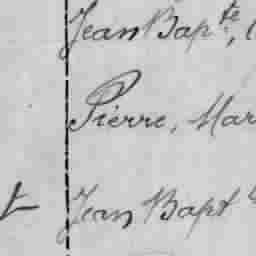 Jean Bapte,
Pierre, Mar
Jean Bapt